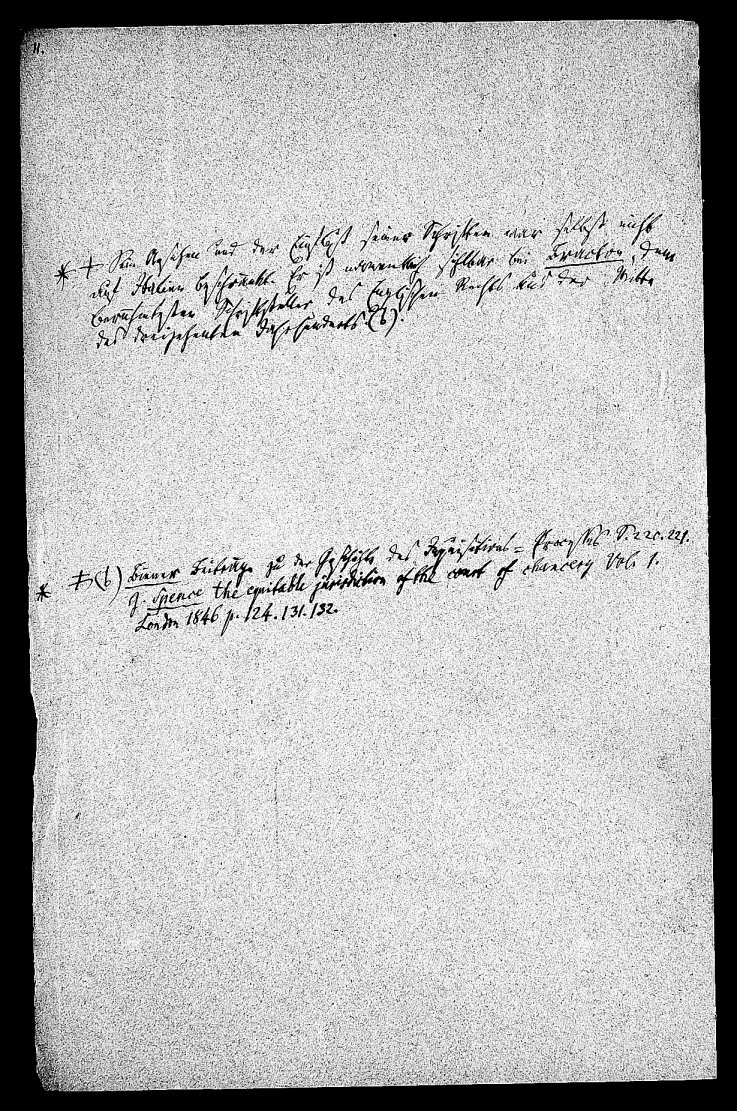 11.
* ‡ Sein Ansehen und der Einfluß seiner Schriften war selbst nicht
auf Italien beschränkt. Er ist namentlich sichtbar bei Bracton, dem
berühmtesten Schriftsteller des Englischen Rechts aus der Mitte
des dreizehenten Jahrhunderts (b).
* ‡ (b) Biener Beiträge zu der Geschichte des Inquisitions=Processes S. 220. 221.
G. Spence the equitable jurisdiction of the court of chancery Vol. 1.
London 1846 p. 124. 131. 132.